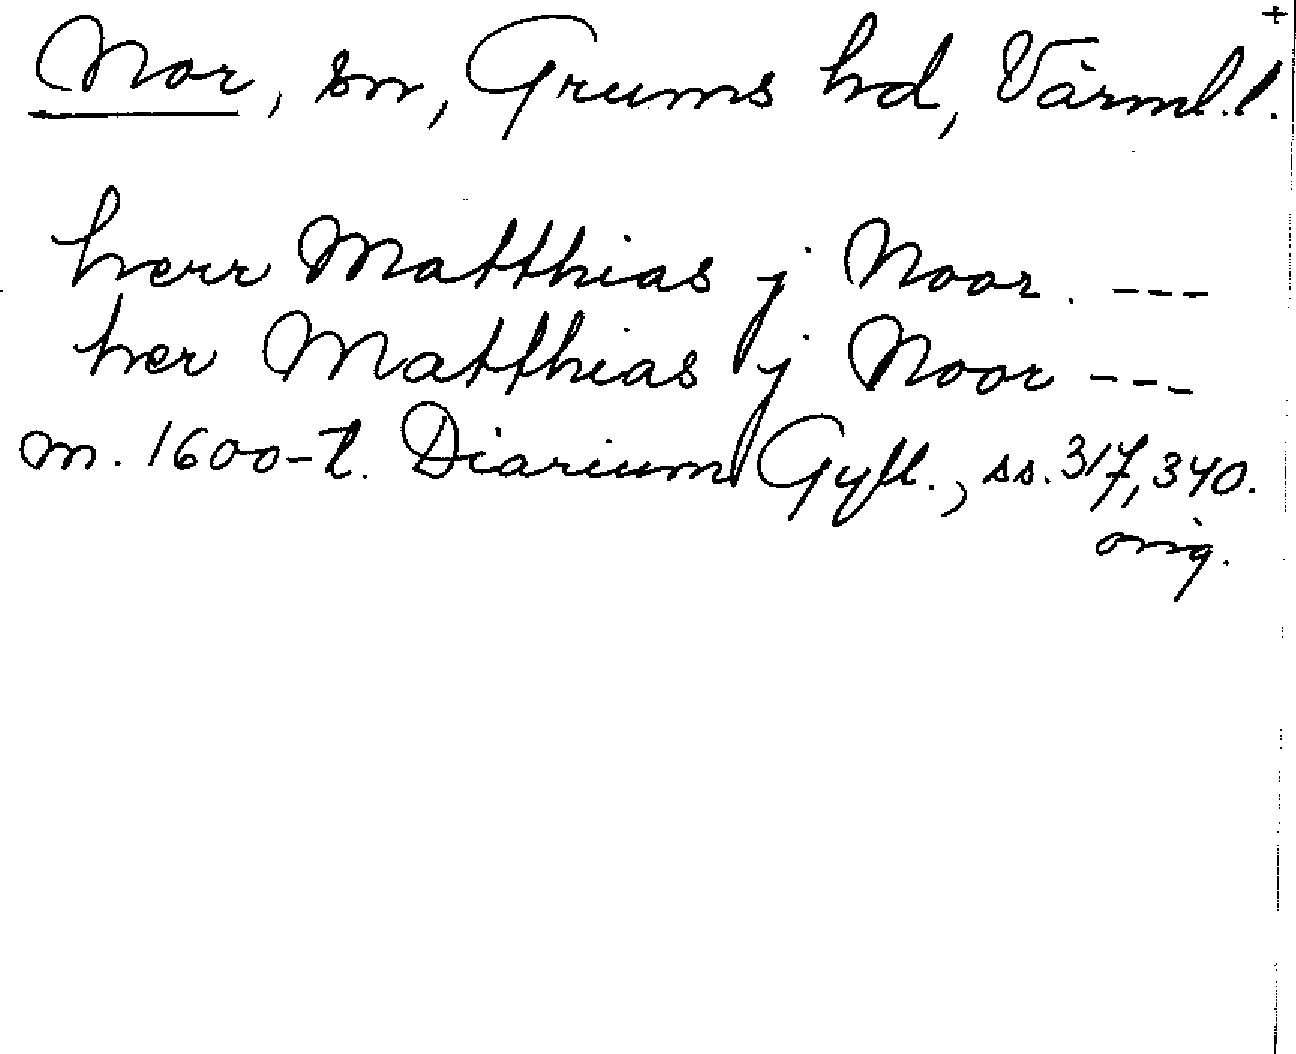 +
Nor, sn, Grums hd, Värml.l.
herr Matthias j Noor. ---
her Matthias j Noor ---
m. 1600-t. Diarium Gyll., ss. 317, 340.
orig.